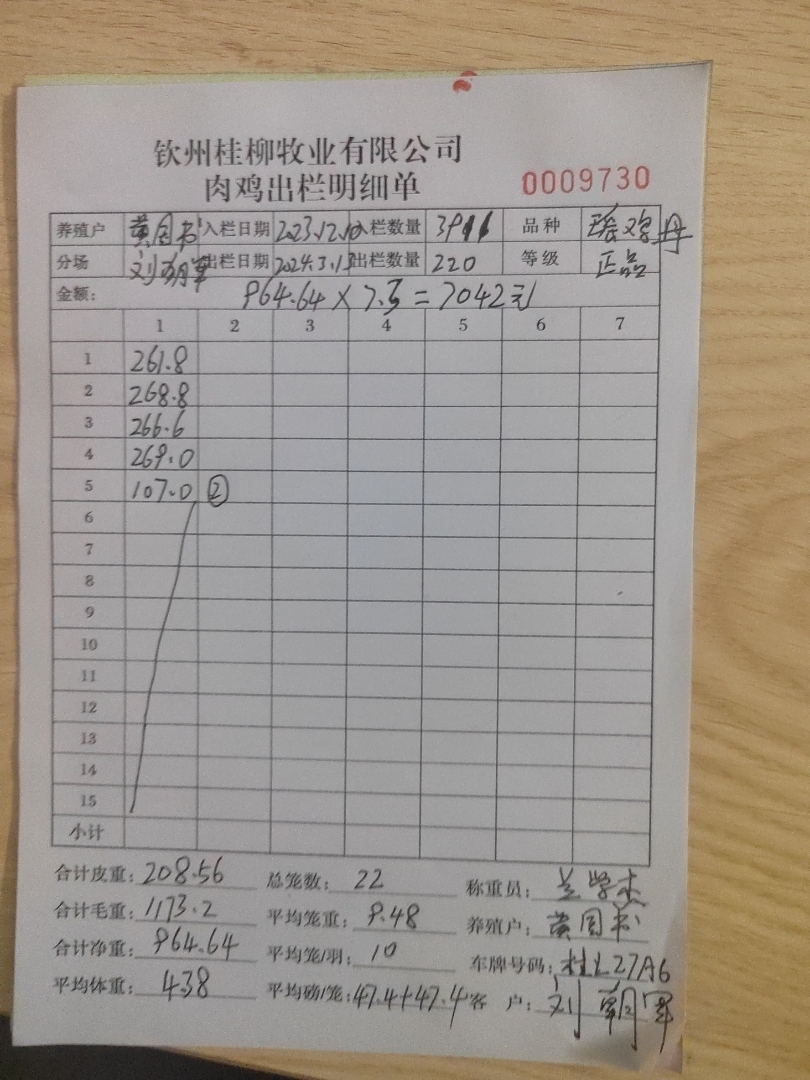 钦州桂柳牧业有限公司
肉鸡出栏明细单 0009730
养殖户 黄周书 入栏日期 2023.12.10 入栏数量 3911 品种 瑶鸡母
分场 刘朝军 出栏日期 2024.3.15 出栏数量 220 等级 正品
金额: 964.64×7.3=7042元
1 2 3 4 5 6 7
1 261.8
2 268.8
3 266.6
4 269.0
5 107.0 ②
6
7
8
9
10
11
12
13
14
15
小计
合计皮重: 208.56 总笼数: 22 称重员: 兰学杰
合计毛重: 1173.2 平均笼重: 9.48 养殖户: 黄周书
合计净重: 964.64 平均笼/羽: 10 车牌号码: 桂L27A6
平均体重: 438 平均磅/笼: 47.4+47.4 客户: 刘朝军